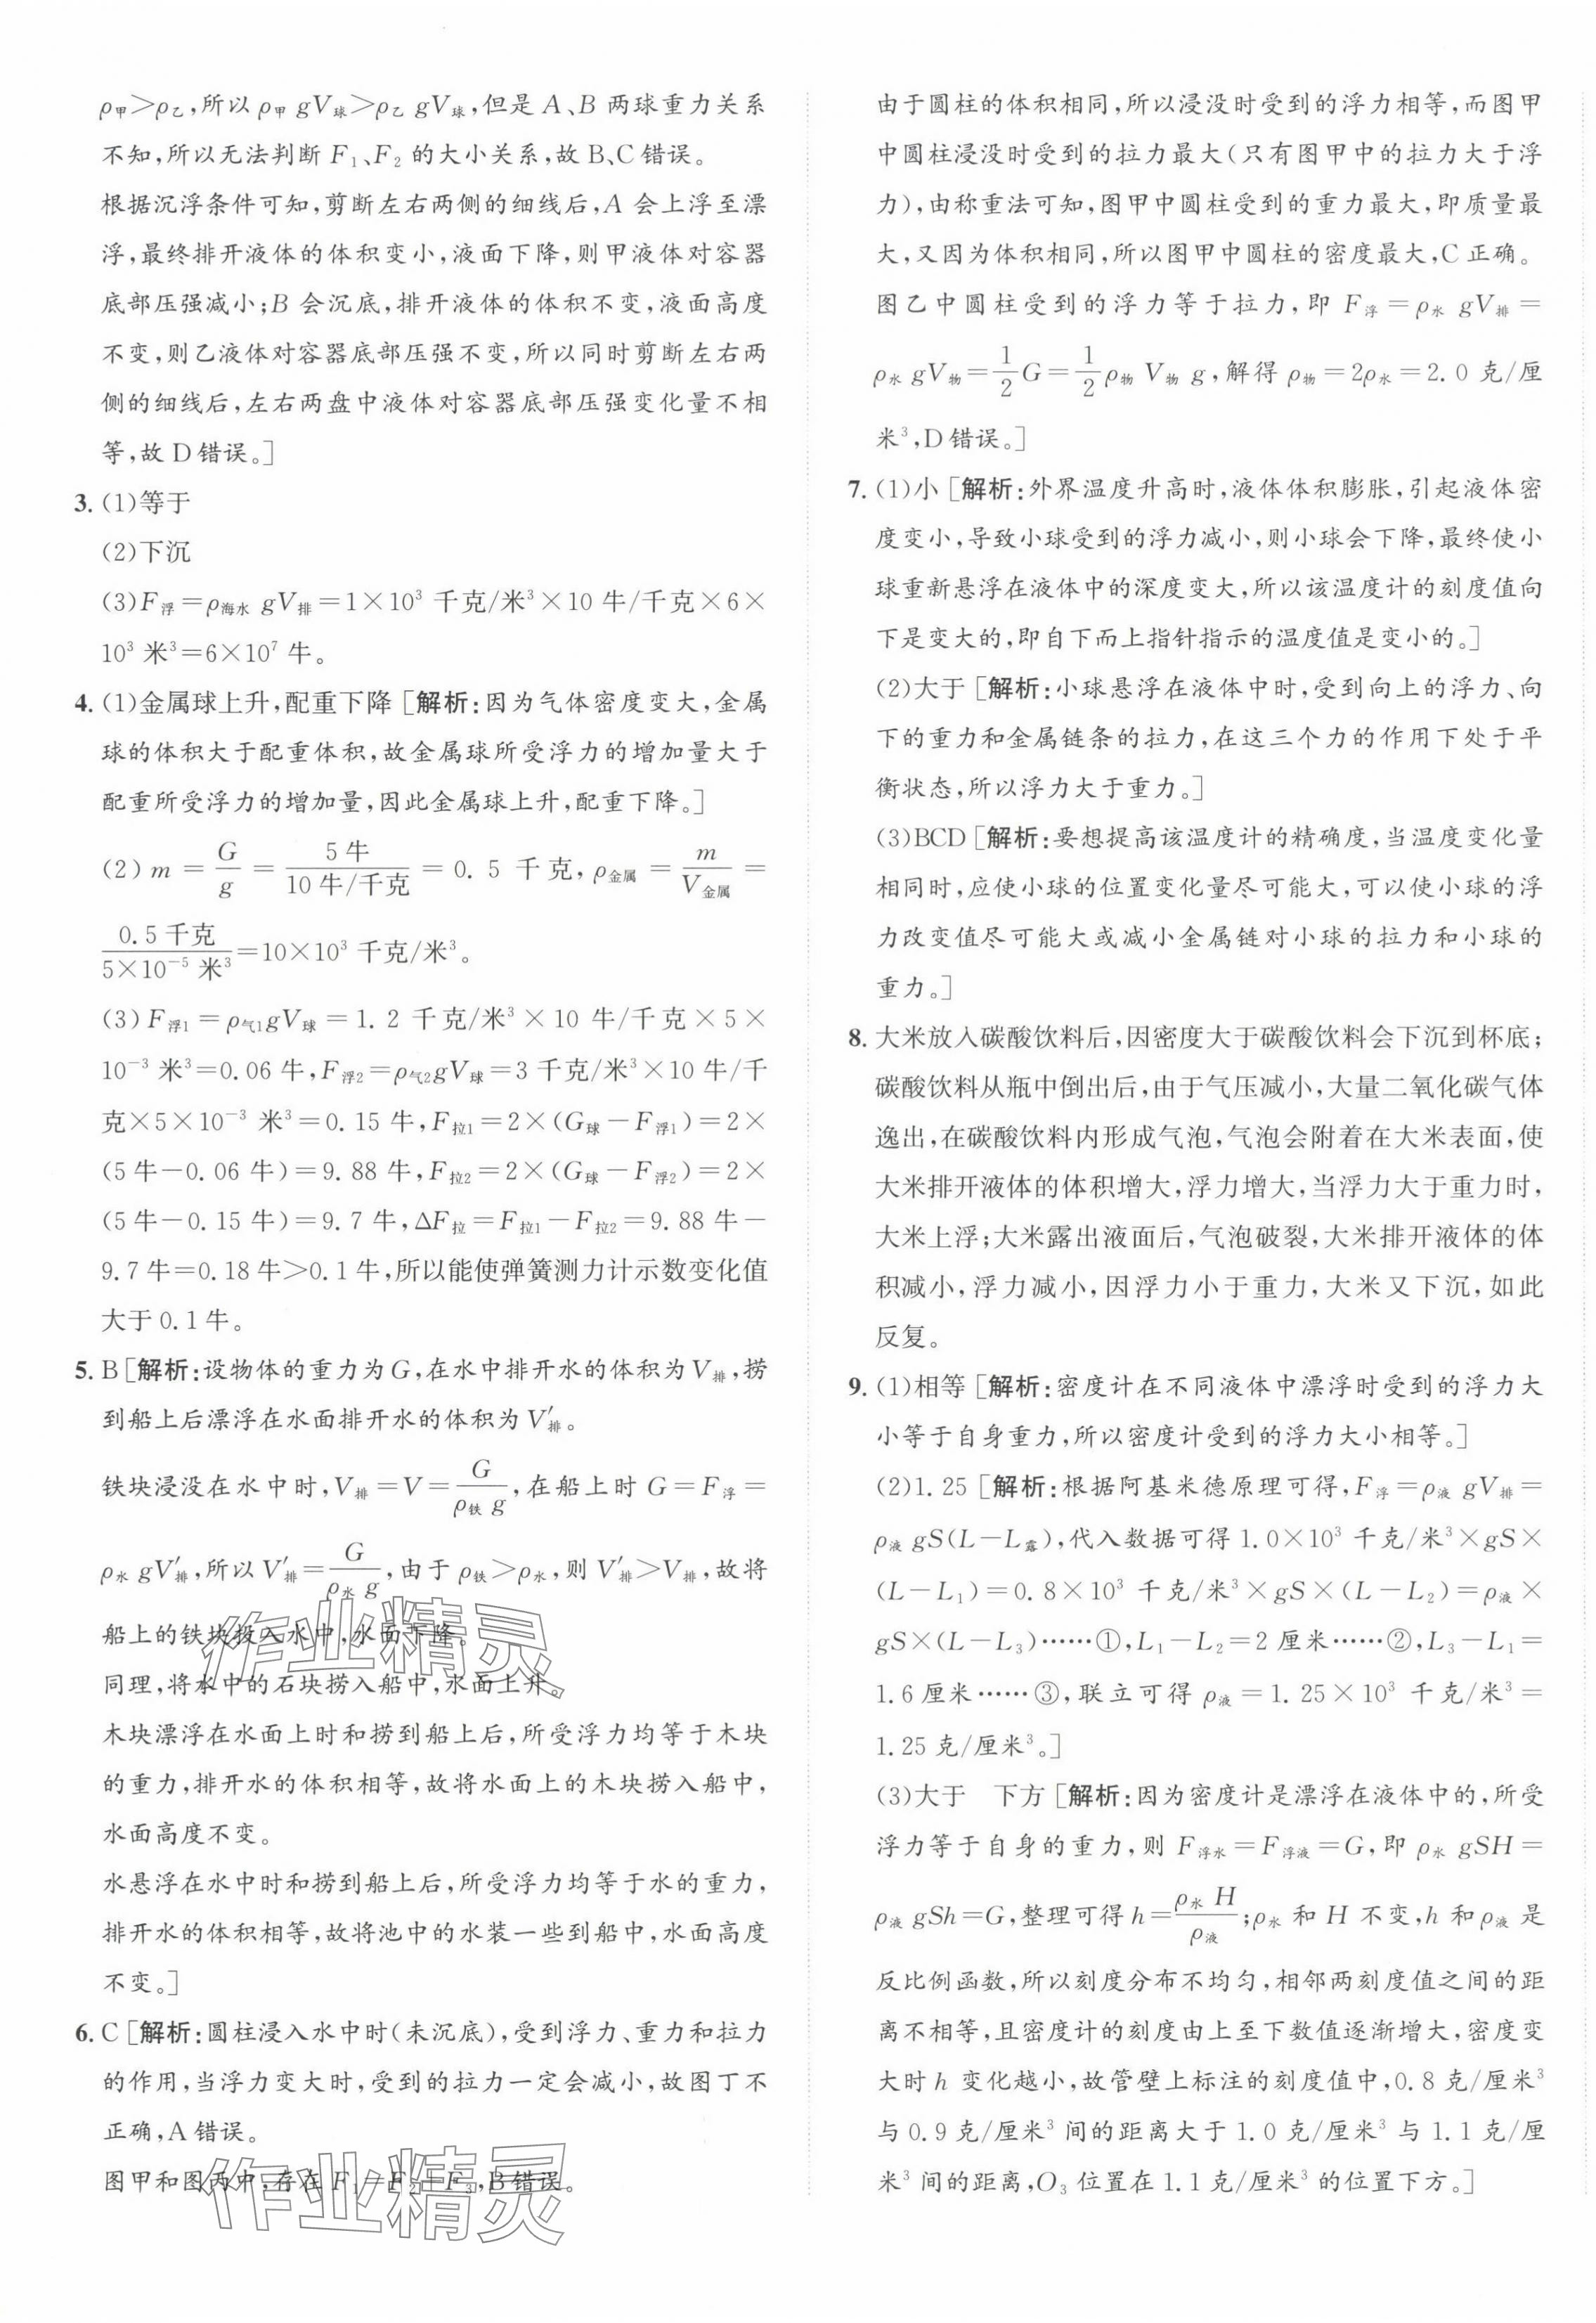 ρ甲>ρ乙,所以 ρ甲 gV球>ρ乙 gV球,但是 A、B 两球重力关系
不知,所以无法判断 F₁、F₂ 的大小关系,故 B、C 错误。
根据沉浮条件可知,剪断左右两侧的细线后,A 会上浮至漂
浮,最终排开液体的体积变小,液面下降,则甲液体对容器
底部压强减小;B 会沉底,排开液体的体积不变,液面高度
不变,则乙液体对容器底部压强不变,所以同时剪断左右两
侧的细线后,左右两盘中液体对容器底部压强变化量不相
等,故 D 错误。]
3. (1)等于
(2)下沉
(3)F浮=ρ海水 gV排=1×10³ 千克/米³×10 牛/千克×6×
10³ 米³=6×10⁷ 牛。
4. (1)金属球上升,配重下降 [解析:因为气体密度变大,金属
球的体积大于配重体积,故金属球所受浮力的增加量大于
配重所受浮力的增加量,因此金属球上升,配重下降。]
(2) m = G/g = 5 牛/(10 牛/千克) = 0.5 千克, ρ金属 = m/V金属 =
0.5 千克/(5×10⁻⁵ 米³)=10×10³ 千克/米³。
(3) F浮1 = ρ气1gV球 = 1.2 千克/米³ × 10 牛/千克 × 5 ×
10⁻³ 米³=0.06 牛,F浮2=ρ气2gV球=3 千克/米³×10 牛/千
克×5×10⁻³ 米³=0.15 牛,F拉1=2×(G球-F浮1)=2×
(5 牛-0.06 牛)=9.88 牛,F拉2=2×(G球-F浮2)=2×
(5 牛-0.15 牛)=9.7 牛,ΔF拉=F拉1-F拉2=9.88 牛-
9.7 牛=0.18 牛>0.1 牛,所以能使弹簧测力计示数变化值
大于 0.1 牛。
5. B [解析:设物体的重力为 G,在水中排开水的体积为 V排,捞
到船上后漂浮在水面排开水的体积为 V′排。
铁块浸没在水中时,V排=V=G/(ρ铁 g),在船上时 G=F浮=
ρ水 gV′排,所以 V′排=G/(ρ水 g),由于 ρ铁>ρ水,则 V′排>V排,故将
船上的铁块投入水中,水面下降。
同理,将水中的石块捞入船中,水面上升。
木块漂浮在水面上时和捞到船上后,所受浮力均等于木块
的重力,排开水的体积相等,故将水面上的木块捞入船中,
水面高度不变。
水悬浮在水中时和捞到船上后,所受浮力均等于水的重力,
排开水的体积相等,故将池中的水装一些到船中,水面高度
不变。]
6. C [解析:圆柱浸入水中时(未沉底),受到浮力、重力和拉力
的作用,当浮力变大时,受到的拉力一定会减小,故图丁不
正确,A 错误。
图甲和图丙中,存在 F₁=F₂-F₃,B 错误。
由于圆柱的体积相同,所以浸没时受到的浮力相等,而图甲
中圆柱浸没时受到的拉力最大(只有图甲中的拉力大于浮
力),由称重法可知,图甲中圆柱受到的重力最大,即质量最
大,又因为体积相同,所以图甲中圆柱的密度最大,C 正确。
图乙中圆柱受到的浮力等于拉力,即 F浮=ρ水 gV排=
ρ水 gV物=1/2 G=1/2 ρ物 V物 g,解得 ρ物=2ρ水=2.0 克/厘
米³,D 错误。]
7. (1)小 [解析:外界温度升高时,液体体积膨胀,引起液体密
度变小,导致小球受到的浮力减小,则小球会下降,最终使小
球重新悬浮在液体中的深度变大,所以该温度计的刻度值向
下是变大的,即自下而上指针指示的温度值是变小的。]
(2)大于 [解析:小球悬浮在液体中时,受到向上的浮力、向
下的重力和金属链条的拉力,在这三个力的作用下处于平
衡状态,所以浮力大于重力。]
(3)BCD [解析:要想提高该温度计的精确度,当温度变化量
相同时,应使小球的位置变化量尽可能大,可以使小球的浮
力改变值尽可能大或减小金属链对小球的拉力和小球的
重力。]
8. 大米放入碳酸饮料后,因密度大于碳酸饮料会下沉到杯底;
碳酸饮料从瓶中倒出后,由于气压减小,大量二氧化碳气体
逸出,在碳酸饮料内形成气泡,气泡会附着在大米表面,使
大米排开液体的体积增大,浮力增大,当浮力大于重力时,
大米上浮;大米露出液面后,气泡破裂,大米排开液体的体
积减小,浮力减小,因浮力小于重力,大米又下沉,如此
反复。
9. (1)相等 [解析:密度计在不同液体中漂浮时受到的浮力大
小等于自身重力,所以密度计受到的浮力大小相等。]
(2)1.25 [解析:根据阿基米德原理可得,F浮=ρ液 gV排=
ρ液 gS(L-L露),代入数据可得 1.0×10³ 千克/米³×gS×
(L-L₁)=0.8×10³ 千克/米³×gS×(L-L₂)=ρ液×
gS×(L-L₃)……①,L₁-L₂=2 厘米……②,L₃-L₁=
1.6 厘米……③,联立可得 ρ液=1.25×10³ 千克/米³=
1.25 克/厘米³。]
(3)大于 下方 [解析:因为密度计是漂浮在液体中的,所受
浮力等于自身的重力,则 F浮水=F浮液=G,即 ρ水 gSH=
ρ液 gSh=G,整理可得 h=ρ水 H/ρ液;ρ水 和 H 不变,h 和 ρ液 是
反比例函数,所以刻度分布不均匀,相邻两刻度值之间的距
离不相等,且密度计的刻度由上至下数值逐渐增大,密度变
大时 h 变化越小,故管壁上标注的刻度值中,0.8 克/厘米³
与 0.9 克/厘米³ 间的距离大于 1.0 克/厘米³ 与 1.1 克/厘
米³ 间的距离,O₃ 位置在 1.1 克/厘米³ 的位置下方。]
作业精灵
作业精灵